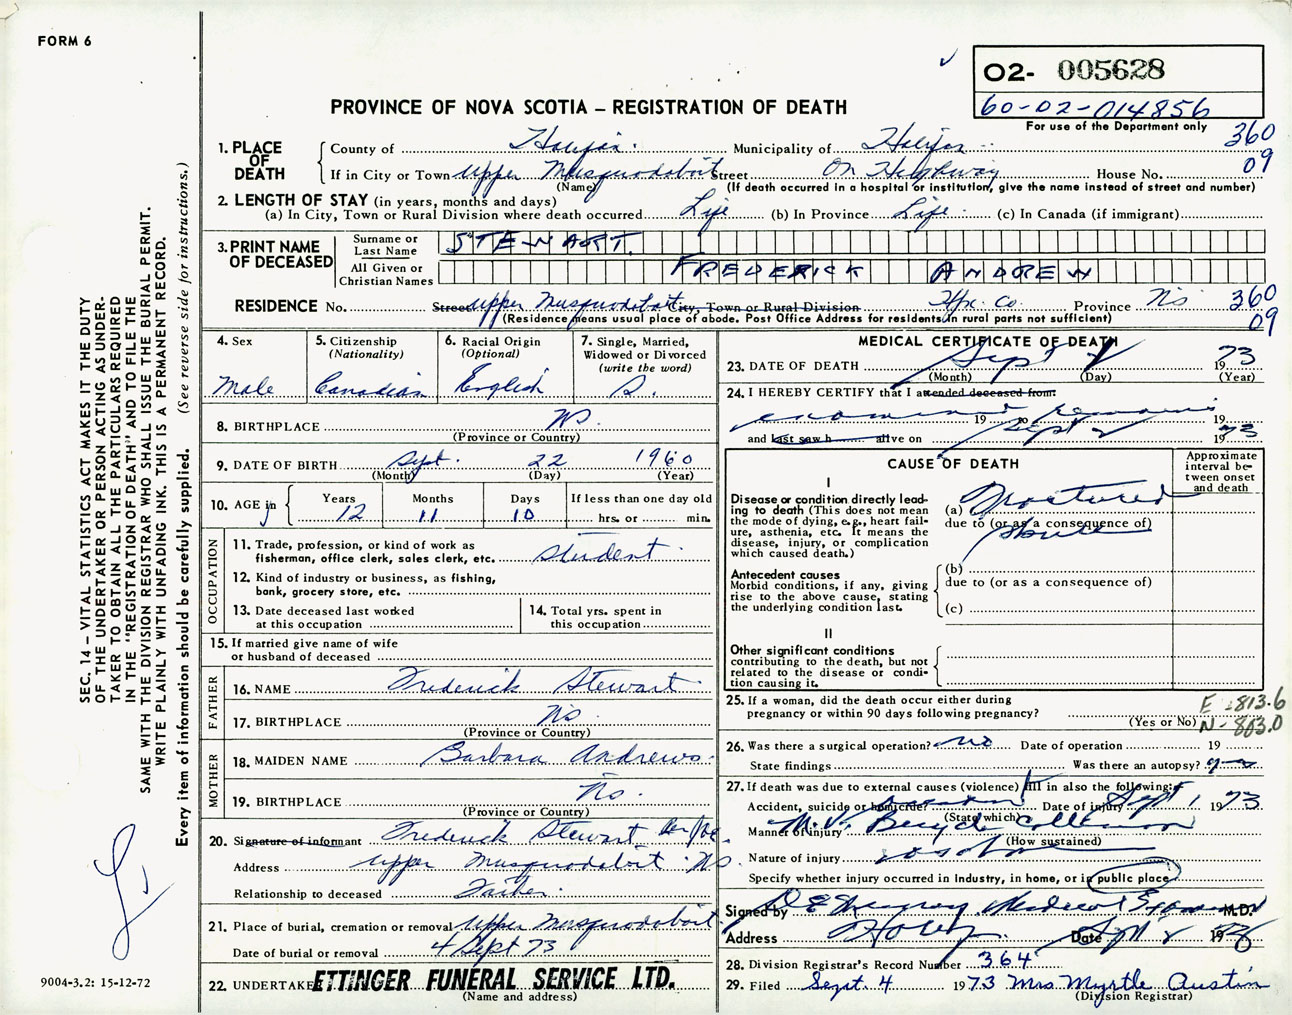 FORM 6
SEC. 14 – VITAL STATISTICS ACT MAKES IT THE DUTY
OF THE UNDERTAKER OR PERSON ACTING AS UNDER-
TAKER TO OBTAIN ALL THE PARTICULARS REQUIRED
IN THE "REGISTRATION OF DEATH" AND TO FILE THE
SAME WITH THE DIVISION REGISTRAR WHO SHALL ISSUE THE BURIAL PERMIT.
WRITE PLAINLY WITH UNFADING INK. THIS IS A PERMANENT RECORD.
Every item of information should be carefully supplied. (See reverse side for instructions.)
9004-3.2: 15-12-72
O2- 005628
60-02-014856
For use of the Department only
PROVINCE OF NOVA SCOTIA – REGISTRATION OF DEATH
360
09
1. PLACE OF DEATH
County of Halifax Municipality of Halifax
If in City or Town Upper Musquodoboit Street On Highway House No.
(Name) (If death occurred in a hospital or institution, give the name instead of street and number)
2. LENGTH OF STAY (in years, months and days)
(a) In City, Town or Rural Division where death occurred Life (b) In Province Life (c) In Canada (if immigrant)
3. PRINT NAME OF DECEASED
Surname or Last Name STEWART
All Given or Christian Names FREDERICK ANDREW
RESIDENCE No. Street Upper Musquodoboit City, Town or Rural Division Hfx. Co. Province NS 360
09
(Residence means usual place of abode. Post Office Address for residents in rural parts not sufficient)
4. Sex
Male
5. Citizenship
(Nationality)
Canadian
6. Racial Origin
(Optional)
English
7. Single, Married,
Widowed or Divorced
(write the word)
S.
8. BIRTHPLACE NS
(Province or Country)
9. DATE OF BIRTH Sept. 22 1960
(Month) (Day) (Year)
10. AGE in
Years Months Days If less than one day old
12 11 10 hrs. or min.
OCCUPATION
11. Trade, profession, or kind of work as
fisherman, office clerk, sales clerk, etc. Student
12. Kind of industry or business, as fishing,
bank, grocery store, etc.
13. Date deceased last worked
at this occupation
14. Total yrs. spent in
this occupation
15. If married give name of wife
or husband of deceased
FATHER
16. NAME Frederick Stewart
17. BIRTHPLACE NS
(Province or Country)
MOTHER
18. MAIDEN NAME Barbara Andrews
19. BIRTHPLACE NS.
(Province or Country)
20. Signature of informant Frederick Stewart
Address Upper Musquodoboit NS.
Relationship to deceased Father
21. Place of burial, cremation or removal Upper Musquodoboit
Date of burial or removal 4 Sept 73
22. UNDERTAKER ETTINGER FUNERAL SERVICE LTD.
(Name and address)
MEDICAL CERTIFICATE OF DEATH
23. DATE OF DEATH Sept 2 1973
(Month) (Day) (Year)
24. I HEREBY CERTIFY that I attended deceased from:
examined remains 19 to 19
and last saw h alive on Sept 2 1973
CAUSE OF DEATH
Approximate
interval be-
tween onset
and death
I
Disease or condition directly lead-
ing to death (This does not mean
the mode of dying, e.g., heart fail-
ure, asthenia, etc. It means the
disease, injury, or complication
which caused death.)
(a) Fractured
due to (or as a consequence of)
Antecedent causes
Morbid conditions, if any, giving
rise to the above cause, stating
the underlying condition last.
(b)
due to (or as a consequence of)
(c)
II
Other significant conditions
contributing to the death, but not
related to the disease or condi-
tion causing it.
25. If a woman, did the death occur either during
pregnancy or within 90 days following pregnancy?
(Yes or No)
E-813.6
N-803.0
26. Was there a surgical operation? no Date of operation 19
State findings Was there an autopsy?
27. If death was due to external causes (violence) fill in also the following:
Accident, suicide or homicide? accident Date of injury Sept 1 1973
(State which)
Manner of injury M.V. Bicycle collision
(How sustained)
Nature of injury
Specify whether injury occurred in industry, in home, or in public place
Signed by Medical Examiner M.D.
Address Date Sept 2 19
28. Division Registrar's Record Number 364
29. Filed Sept. 4 1973 Mrs Myrtle Austin
(Division Registrar)